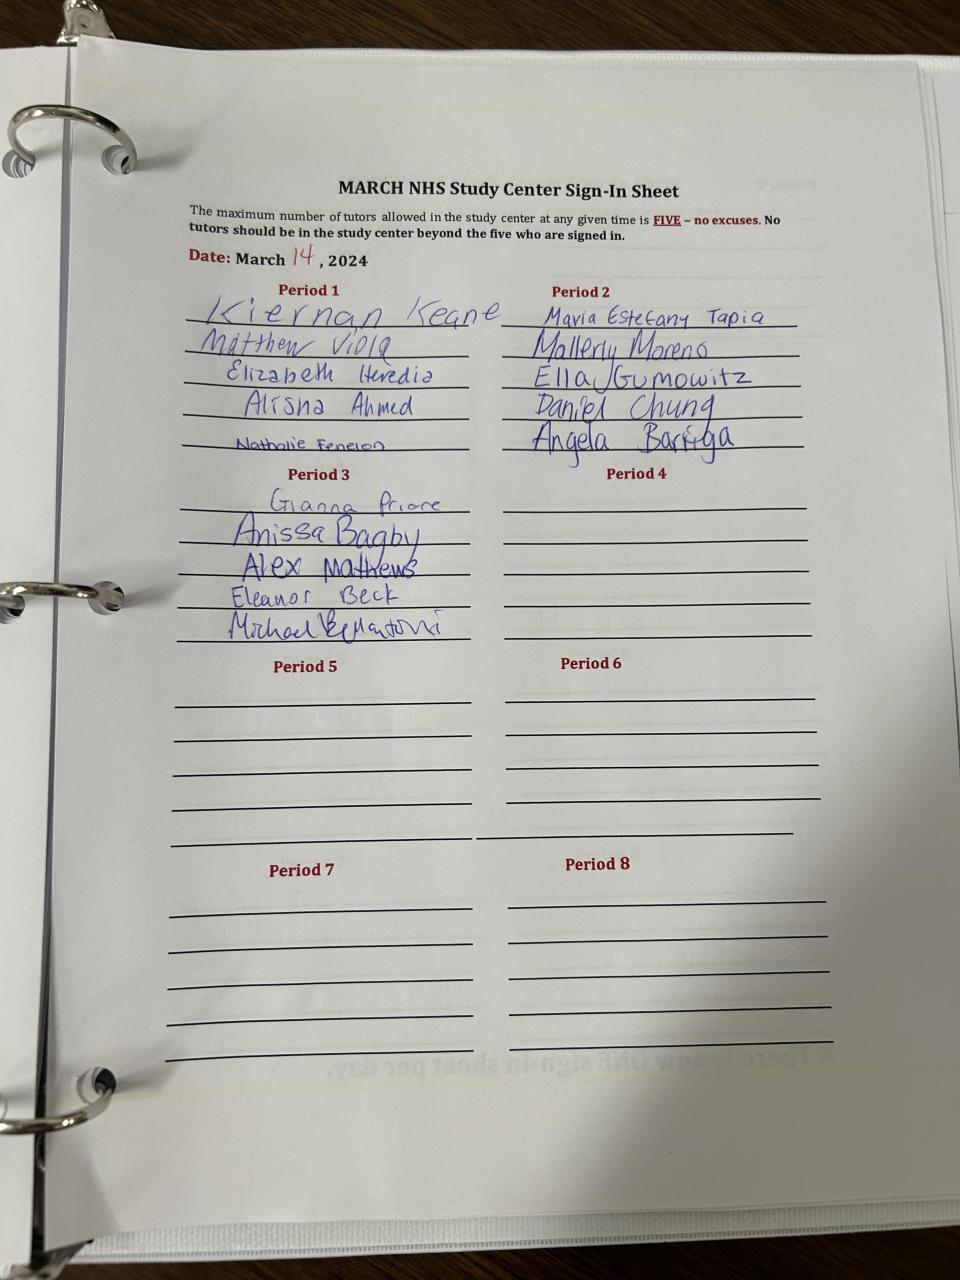 MARCH NHS Study Center Sign-In Sheet
The maximum number of tutors allowed in the study center at any given time is FIVE – no excuses. No
tutors should be in the study center beyond the five who are signed in.
Date: March 14, 2024
Period 1
Kiernan Keane
Matthew Viola
Elizabeth Heredia
Alisha Ahmed
Nathalie Fenelon
Period 2
Maria Estefany Tapia
Mallerly Moreno
Ella Gumowitz
Daniel Chung
Angela Barriga
Period 3
Gianna Priore
Anissa Bagby
Alex Mathews
Eleanor Beck
Michael
Period 4
Period 5
Period 6
Period 7
Period 8
* There is now ONE sign-in sheet per day.